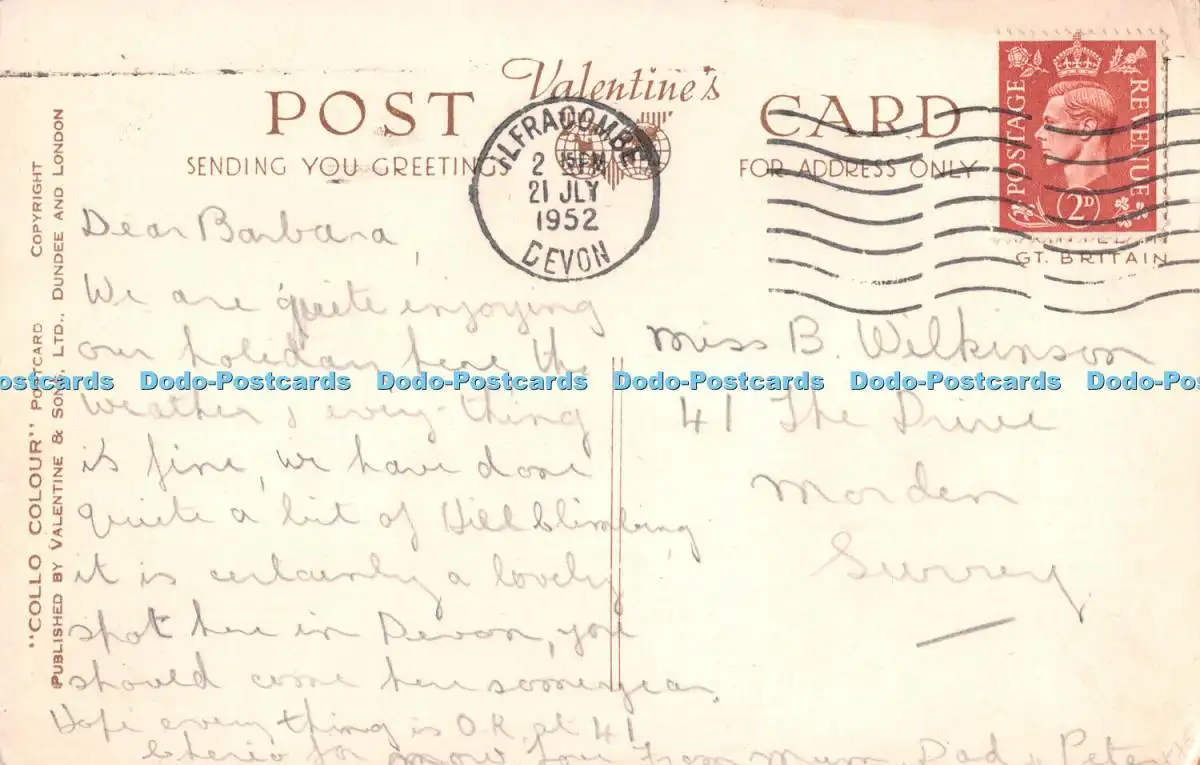 Valentine's
POST CARD
SENDING YOU GREETINGS
FOR ADDRESS ONLY
ILFRACOMBE
2 15PM
21 JLY
1952
DEVON
POSTAGE REVENUE
2D
GT. BRITAIN
"COLLO COLOUR" POSTCARD COPYRIGHT
PUBLISHED BY VALENTINE & SONS, LTD., DUNDEE AND LONDON
Dear Barbara,
We are quite enjoying
our holiday here the
weather & every-thing
is fine, we have done
quite a bit of Hill Climbing,
it is certainly a lovely
spot here in Devon, you
should come here some year.
Hope every thing is O.K. at 41
Cherio for now love From Mum, Dad & Peter xxx
Miss B. Wilkinson
41 The Drive
Morden
Surrey
Dodo-Postcards Dodo-Postcards Dodo-Postcards Dodo-Postcards Dodo-Postcards